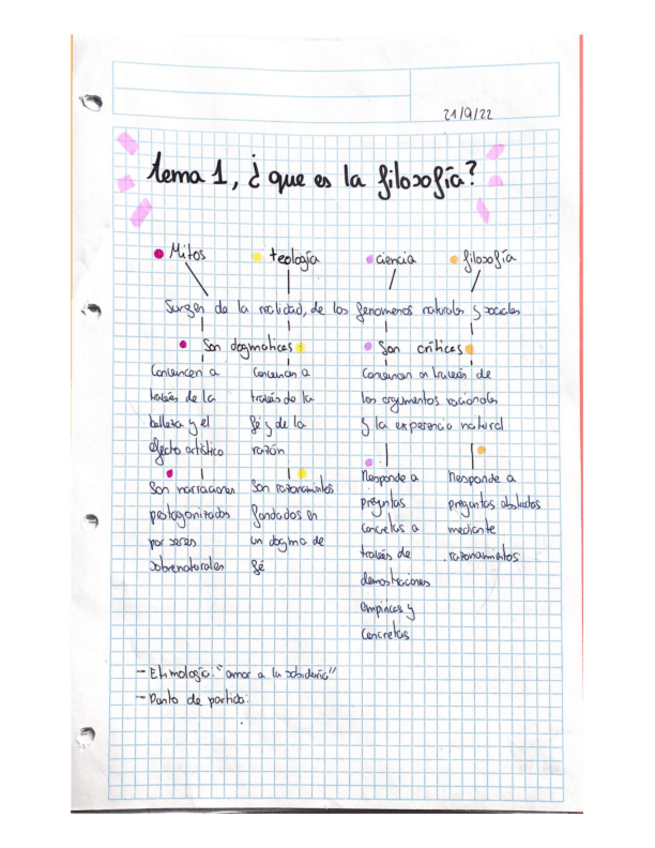 21/9/22
tema 1, ¿que es la filosofía?
Mitos teología ciencia filosofía
Surgen de la realidad, de los fenomenos naturales y sociales
Son dogmaticas Son críticas
Convencen a
traves de la
belleza y el
efecto artístico
Convencen a
través de la
fé y de la
razón
Convencen a través de
los argumentos racionales
y la experiencia natural
Son narraciones
protagonizados
por seres
sobrenaturales
Son razonamientos
fundados en
un dogma de
fé
Responde a
preguntas
concretas a
través de
demostraciones
empiricas y
concretas
Responde a
preguntas abstractas
mediante
razonamientos
- Etimología: "amor a la sabiduría"
- Punto de partida: